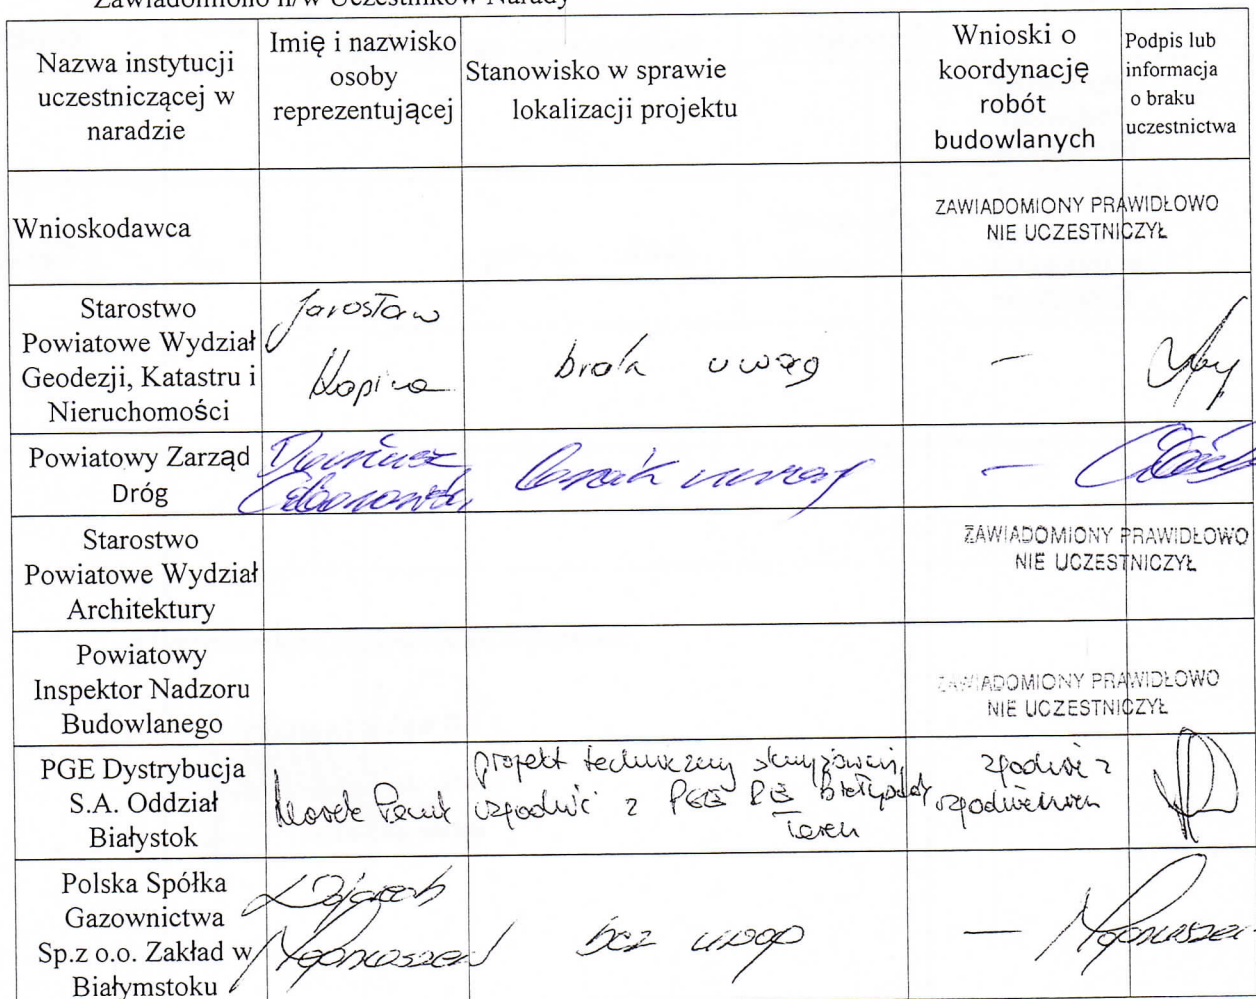 Zawiadomiono n/w Uczestników Narady
Nazwa instytucji
uczestniczącej w
naradzie
Imię i nazwisko
osoby
reprezentującej
Stanowisko w sprawie
lokalizacji projektu
Wnioski o
koordynację
robót
budowlanych
Podpis lub
informacja
o braku
uczestnictwa
Wnioskodawca
ZAWIADOMIONY PRAWIDŁOWO
NIE UCZESTNICZYŁ
Starostwo
Powiatowe Wydział
Geodezji, Katastru i
Nieruchomości
Jarosław
brak uwag
—
Powiatowy Zarząd
Dróg
Dariusz
brak uwag
—
Starostwo
Powiatowe Wydział
Architektury
ZAWIADOMIONY PRAWIDŁOWO
NIE UCZESTNICZYŁ
Powiatowy
Inspektor Nadzoru
Budowlanego
ZAWIADOMIONY PRAWIDŁOWO
NIE UCZESTNICZYŁ
PGE Dystrybucja
S.A. Oddział
Białystok
Marek
projekt techniczny skrzyżowań
uzgodnić z PGE RE Białystok
Teren
zgodnie z
uzgodnieniem
Polska Spółka
Gazownictwa
Sp.z o.o. Zakład w
Białymstoku
bez uwag
—